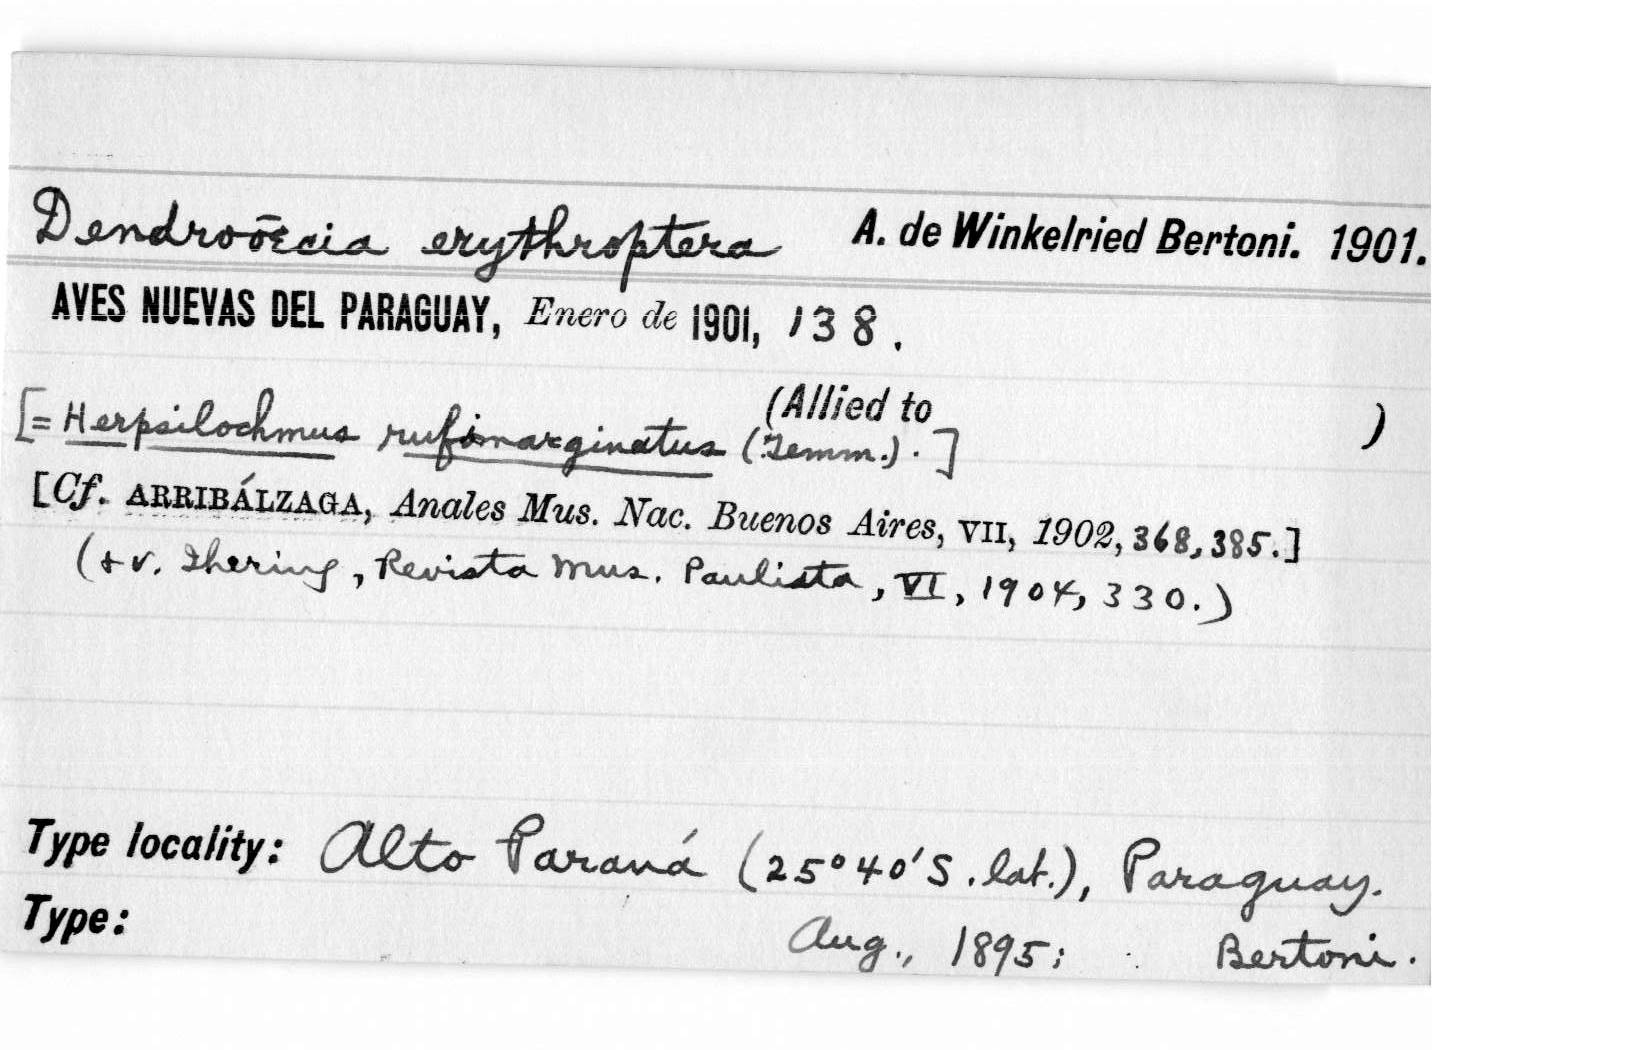 Dendroōecia erythroptera A. de Winkelried Bertoni. 1901.
AVES NUEVAS DEL PARAGUAY, Enero de 1901, 138.
(Allied to )
[= Herpsilochmus rufimarginatus (Temm.). ]
[Cf. ARRIBÁLZAGA, Anales Mus. Nac. Buenos Aires, VII, 1902, 368, 385.]
(+ v. Ihering, Revista Mus. Paulista, VI, 1904, 330.)
Type locality: Alto Paraná (25°40'S. lat.), Paraguay.
Type: Aug., 1895; Bertoni.